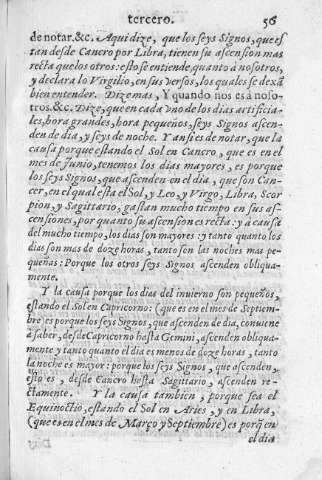 tercero. 56
de notar.&c. Aqui dize, que los seys Signos, que es
tan desde Cancro por Libra, tienen su ascension mas
recta que los otros: esto se entiende, quanto à nosotros,
y declara lo Virgilio, en sus versos, los quales se dexã
bien entender. Dize mas, Y quando nos es à noso
tros.&c. Dize, que en cada vno de los dias artificia-
les, hora grandes, hora pequeños, seys Signos ascen
den de dia, y seys de noche. Y ansi es de notar, que la
causa porque estando el Sol en Cancro, que es en el
mes de Iunio, tenemos los dias mayores, es porque
los seys Signos, que ascenden en el dia, que son Can-
cer, en el qual esta el Sol, y Leo, y Virgo, Libra, Scor
pion, y Sagittario, gastan mucho tiempo en sus as-
censiones, por quanto su ascension es recta: y à causa
del mucho tiempo, los dias son mayores: y tanto quanto los
dias son mas de doze horas, tanto son las noches mas pe-
queñas: Porque los otros seys Signos ascenden obliqua-
mente.
Y la causa porque los dias del inuierno son pequeños,
estando el Sol en Capricorno: (que es en el mes de Septiem-
bre) es porque los seys Signos, que ascenden de dia, conuiene
à saber, desde Capricorno hasta Gemini, ascenden obliqua-
mente y tanto quanto el dia es menos de doze horas, tanto
la noche es mayor: porque los seys Signos, que ascenden,
esto es, desde Cancro hasta Sagittario, ascenden re-
ctamente. Y la causa tambien, porque sea el
Equinoctio, estando el Sol en Aries, y en Libra,
(que es en el mes de Março y Septiembre) es porq̃ en
el dia